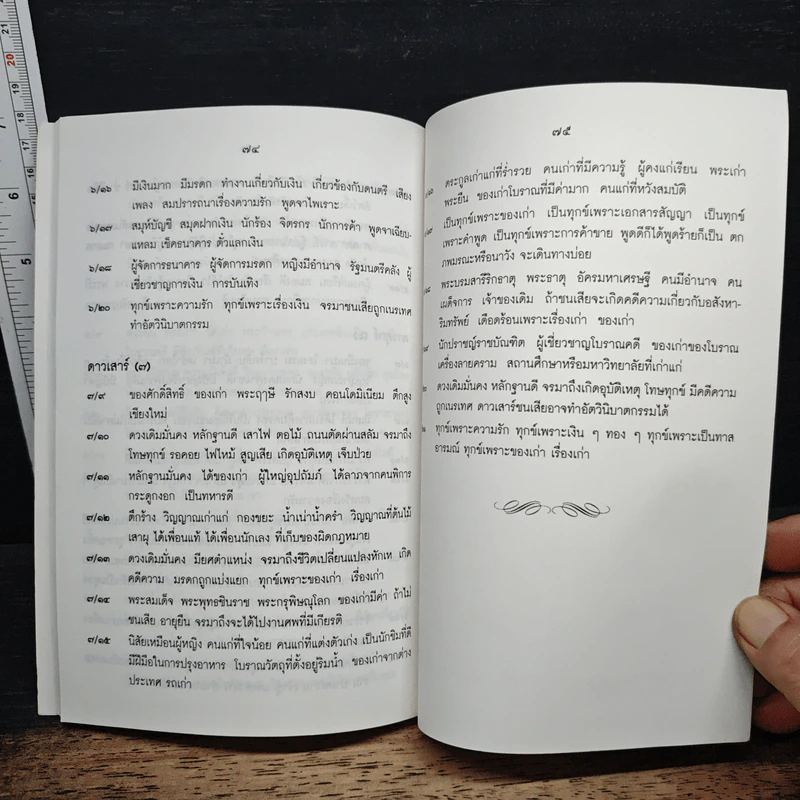 ๗๔
๖/๑๖ มีเงินมาก มีมรดก ทำงานเกี่ยวกับเงิน เกี่ยวข้องกับดนตรี เสียง
เพลง สมปรารถนาเรื่องความรัก พูดจาไพเราะ
๖/๑๗ สมุห์บัญชี สมุดฝากเงิน นักร้อง จิตรกร นักการค้า พูดจาเฉียบ-
แหลม เช็คธนาคาร ตั๋วแลกเงิน
๖/๑๘ ผู้จัดการธนาคาร ผู้จัดการมรดก หญิงมีอำนาจ รัฐมนตรีคลัง ผู้
เชี่ยวชาญการเงิน การบันเทิง
๖/๒๐ ทุกข์เพราะความรัก ทุกข์เพราะเรื่องเงิน จรมาชนเสียถูกเนรเทศ
ทำอัตวินิบาตกรรม
ดาวเสาร์ (๗)
๗/๙ ของศักดิ์สิทธิ์ ของเก่า พระฤาษี รักสงบ คอนโดมิเนียม ตึกสูง
เชียงใหม่
๗/๑๐ ดวงเดิมมั่นคง หลักฐานดี เสาไฟ ตอไม้ ถนนตัดผ่านสลัม จรมาถึง
โทษทุกข์ รอคอย ไฟไหม้ สูญเสีย เกิดอุบัติเหตุ เจ็บป่วย
๗/๑๑ หลักฐานมั่นคง ได้ของเก่า ผู้ใหญ่อุปถัมภ์ ได้ลาภจากคนพิการ
กระดูกงอก เป็นทหารดี
๗/๑๒ ตึกร้าง วิญญาณเก่าแก่ กองขยะ น้ำเน่าน้ำครำ วิญญาณที่ต้นไม้
เสาผุ ได้เพื่อนแท้ ได้เพื่อนนักเลง ที่เก็บของผิดกฎหมาย
๗/๑๓ ดวงเดิมมั่นคง มียศตำแหน่ง จรมาถึงชีวิตเปลี่ยนแปลงหักเห เกิด
คดีความ มรดกถูกแบ่งแยก ทุกข์เพราะของเก่า เรื่องเก่า
๗/๑๔ พระสมเด็จ พระพุทธชินราช พระกรุพิษณุโลก ของเก่ามีค่า ถ้าไม่
ชนเสีย อายุยืน จรมาถึงจะได้ไปงานศพที่มีเกียรติ
๗/๑๕ นิสัยเหมือนผู้หญิง คนแก่ที่ใจน้อย คนแก่ที่แต่งตัวเก่ง เป็นนักชิมที่ดี
มีฝีมือในการปรุงอาหาร โบราณวัตถุที่ตั้งอยู่ริมน้ำ ของเก่าจากต่าง
ประเทศ รถเก่า
๗๕
ตระกูลเก่าแก่ที่ร่ำรวย คนเก่าที่มีความรู้ ผู้คงแก่เรียน พระเก่า
พระยืน ของเก่าโบราณที่มีค่ามาก คนแก่ที่หวังสมบัติ
เป็นทุกข์เพราะของเก่า เป็นทุกข์เพราะเอกสารสัญญา เป็นทุกข์
เพราะคำพูด เป็นทุกข์เพราะการค้าขาย พูดดีก็ได้พูดร้ายก็เป็น ตก
ภพมรณะหรือนาวัง จะเดินทางบ่อย
พระบรมสารีริกธาตุ พระธาตุ อัครมหาเศรษฐี คนมีอำนาจ คน
เผด็จการ เจ้าของเดิม ถ้าชนเสียจะเกิดคดีความเกี่ยวกับอสังหา-
ริมทรัพย์ เดือดร้อนเพราะเรื่องเก่า ของเก่า
นักปราชญ์ราชบัณฑิต ผู้เชี่ยวชาญโบราณคดี ของเก่าของโบราณ
เครื่องลายคราม สถานศึกษาหรือมหาวิทยาลัยที่เก่าแก่
ดวงเดิมมั่นคง หลักฐานดี จรมาถึงเกิดอุบัติเหตุ โทษทุกข์ มีคดีความ
ถูกเนรเทศ ดาวเสาร์ชนเสียอาจทำอัตวินิบาตกรรมได้
ทุกข์เพราะความรัก ทุกข์เพราะเงิน ๆ ทอง ๆ ทุกข์เพราะเป็นทาส
อารมณ์ ทุกข์เพราะของเก่า เรื่องเก่า